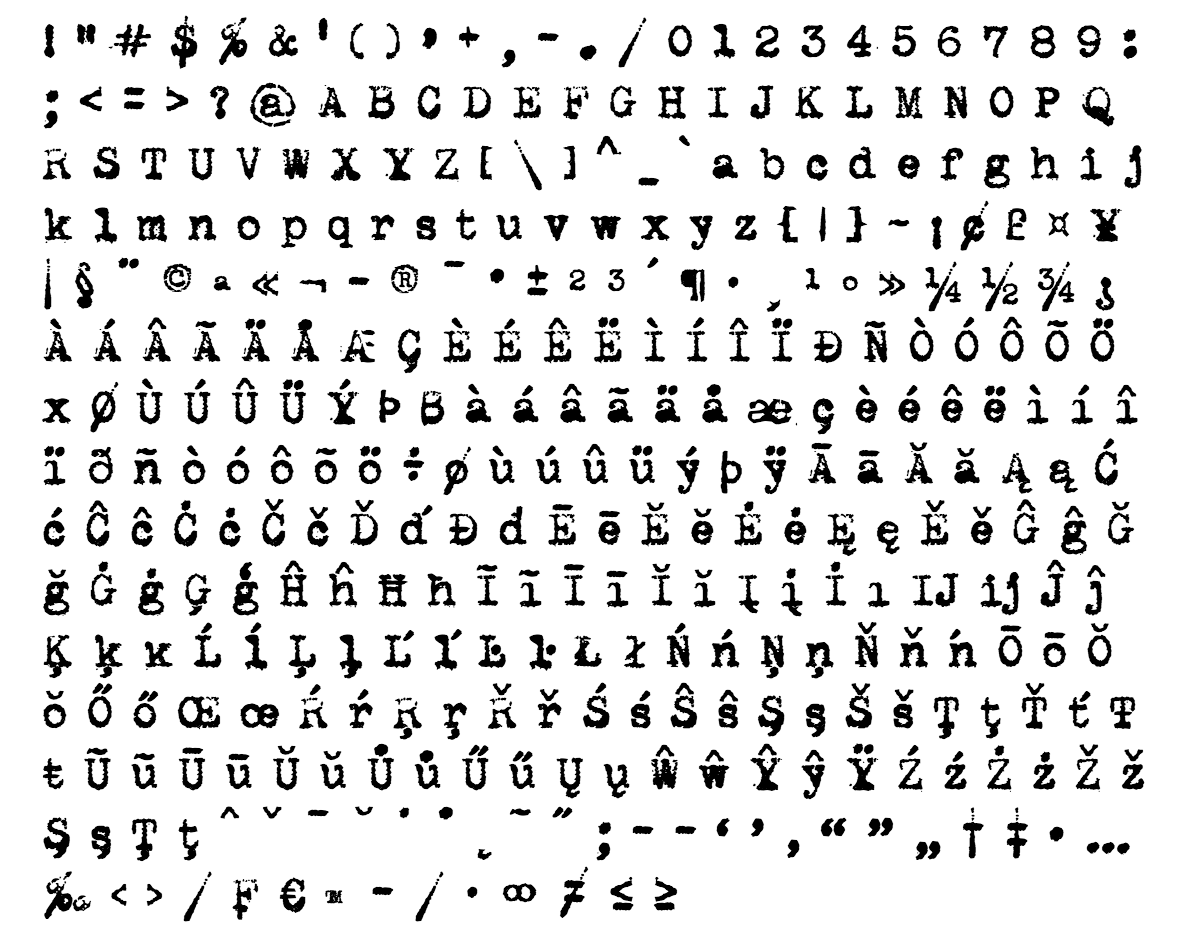 ! " # $ % & ' ( ) * + , - . / 0 1 2 3 4 5 6 7 8 9 :
; < = > ? @ A B C D E F G H I J K L M N O P Q
R S T U V W X Y Z [ \ ] ^ _ ` a b c d e f g h i j
k l m n o p q r s t u v w x y z { | } ~ ¡ ¢ £ ¤ ¥
¦ § ¨ © ª « ¬ - ® ¯ ° ± ² ³ ´ ¶ · ¸ ¹ º » ¼ ½ ¾ ¿
À Á Â Ã Ä Å Æ Ç È É Ê Ë Ì Í Î Ï Ð Ñ Ò Ó Ô Õ Ö
× Ø Ù Ú Û Ü Ý Þ ß à á â ã ä å æ ç è é ê ë ì í î
ï ð ñ ò ó ô õ ö ÷ ø ù ú û ü ý þ ÿ Ā ā Ă ă Ą ą Ć
ć Ĉ ĉ Ċ ċ Č č Ď ď Đ đ Ē ē Ĕ ĕ Ė ė Ę ę Ě ě Ĝ ĝ Ğ
ğ Ġ ġ Ģ ģ Ĥ ĥ Ħ ħ Ĩ ĩ Ī ī Ĭ ĭ Į į İ ı IJ ij Ĵ ĵ
Ķ ķ ĸ Ĺ ĺ Ļ ļ Ľ ľ Ŀ ŀ Ł ł Ń ń Ņ ņ Ň ň ŉ Ō ō Ŏ
ŏ Ő ő Œ œ Ŕ ŕ Ŗ ŗ Ř ř Ś ś Ŝ ŝ Ş ş Š š Ţ ţ Ť ť Ŧ
ŧ Ũ ũ Ū ū Ŭ ŭ Ů ů Ű ű Ų ų Ŵ ŵ Ŷ ŷ Ÿ Ź ź Ż ż Ž ž
Ș ș Ț ț ˆ ˇ ˉ ˘ ˙ ˚ ˛ ˜ ˝ ; – — ‘ ’ ‚ “ ” „ † ‡ • …
‰ ‹ › ⁄ ₣ € ™ − ∕ ∙ ∞ ≠ ≤ ≥